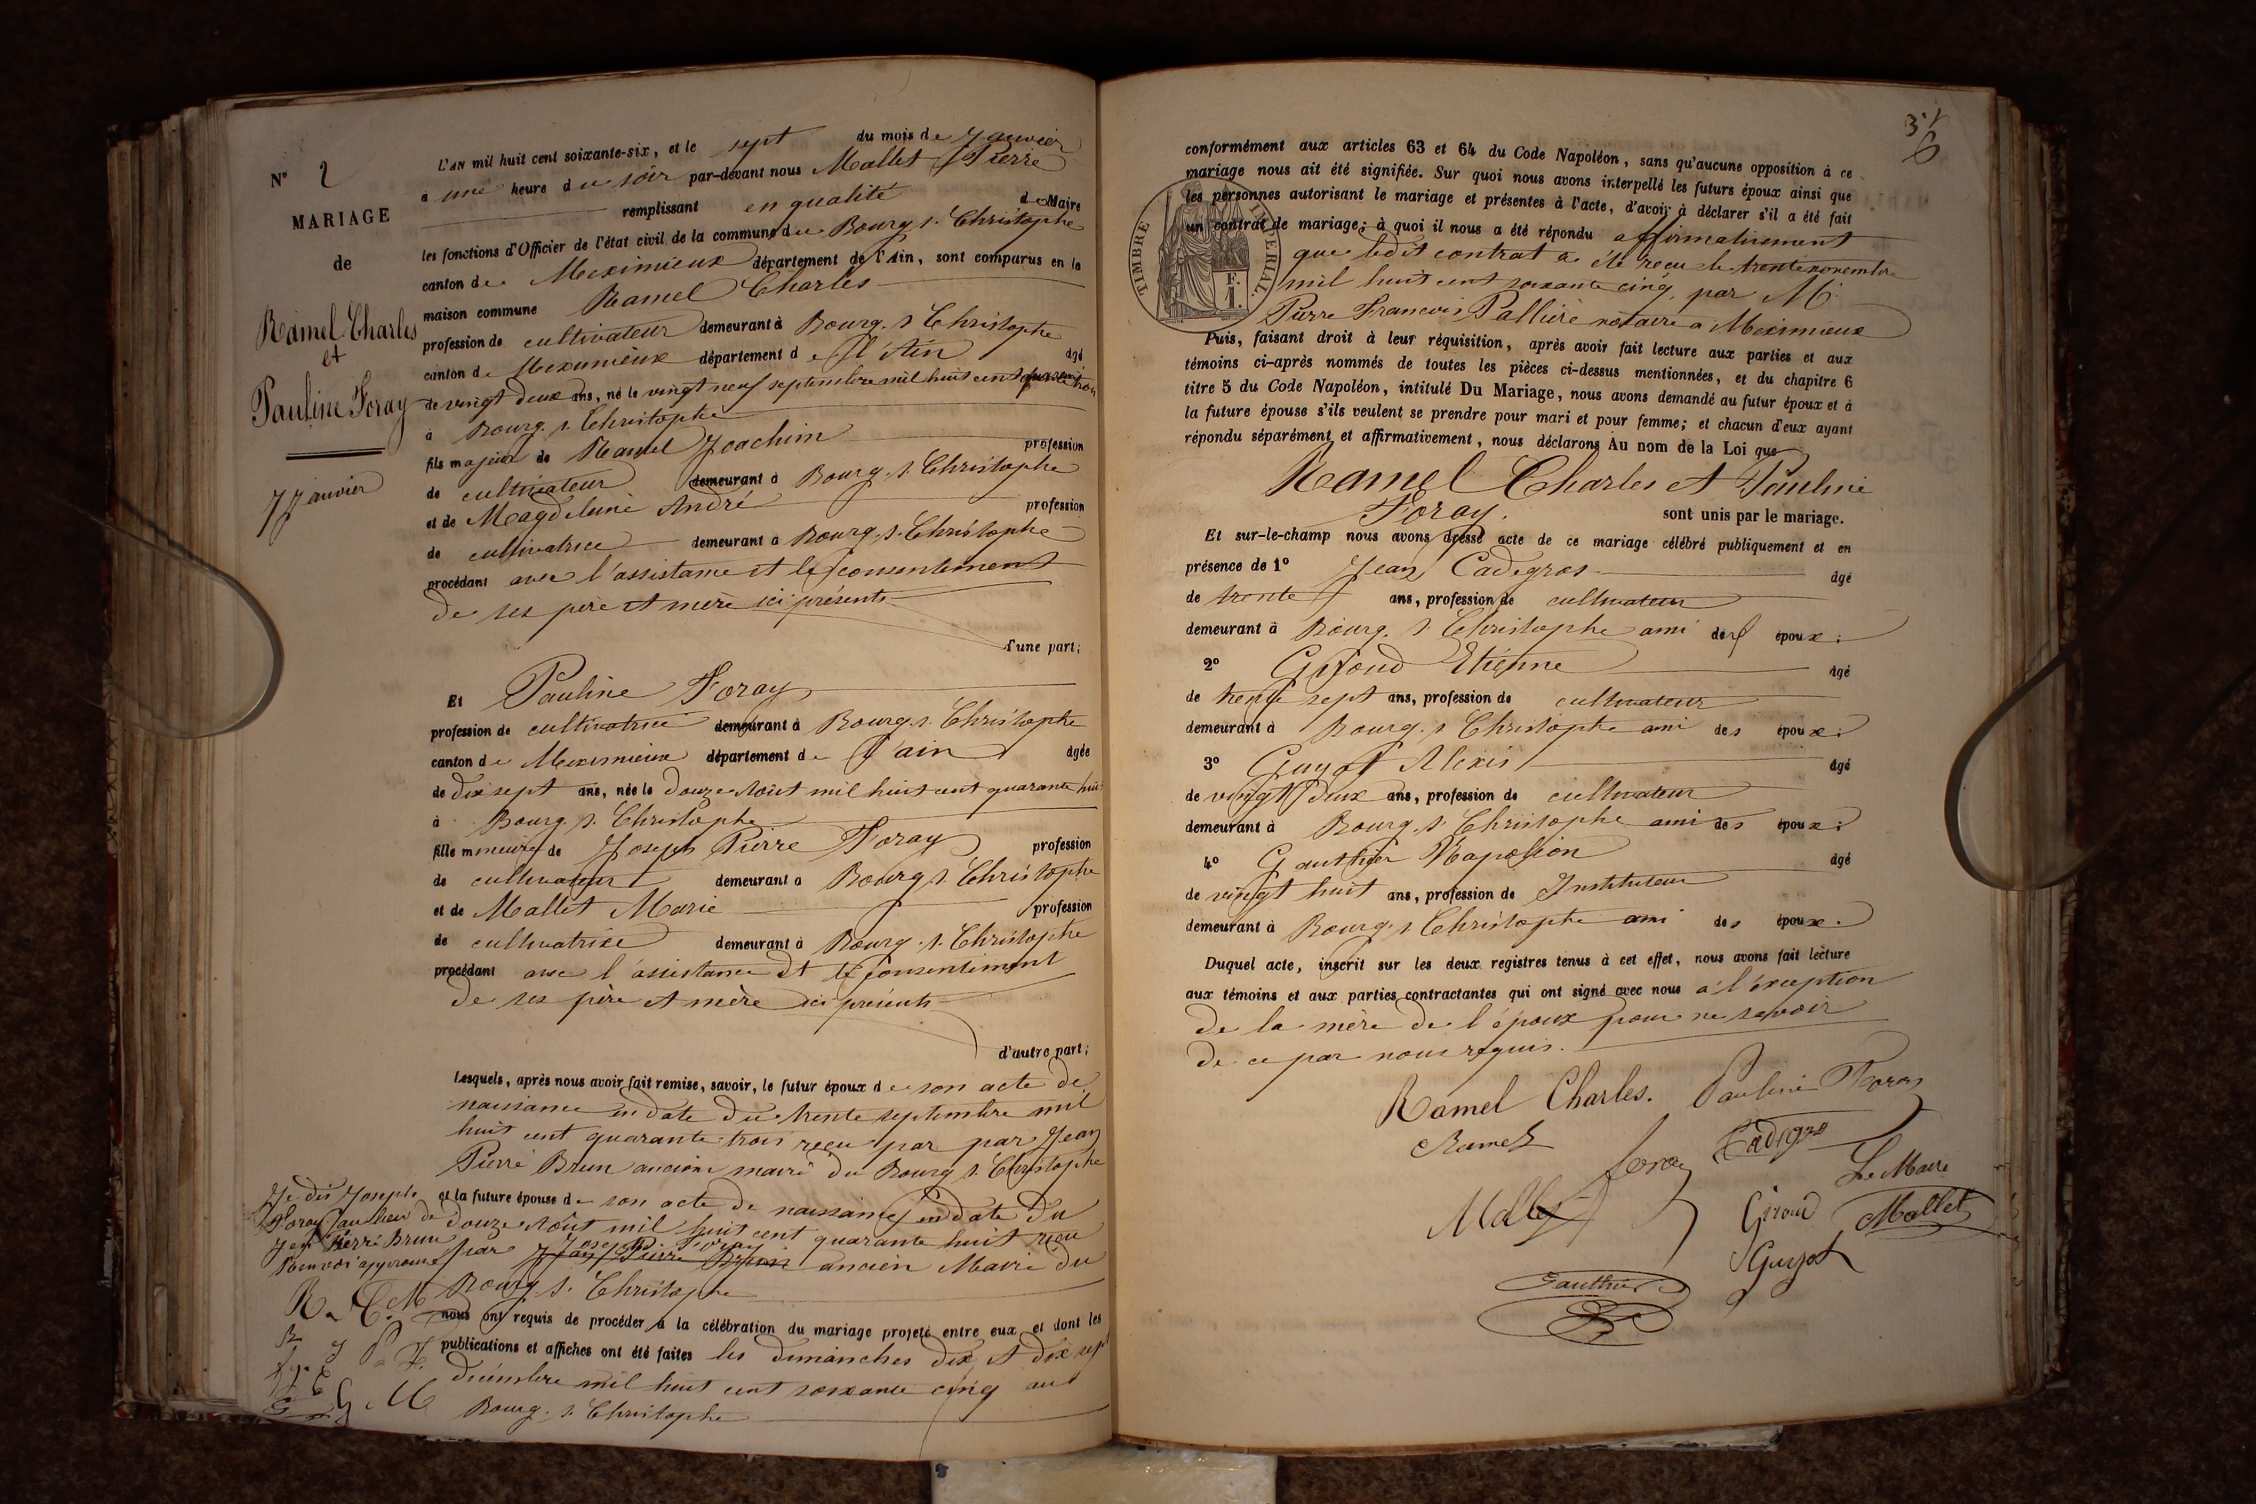 N° 2
MARIAGE
de
Ramel Charles
et
Pauline Foray
7 Janvier
L'AN mil huit cent soixante-six, et le sept du mois de Janvier
à une heure du soir par-devant nous Mallet Pierre
remplissant en qualité de Maire
les fonctions d'Officier de l'état civil de la commune de Bourg St Christophe
canton de Meximieux département de l'Ain, sont comparus en la
maison commune Ramel Charles
profession de cultivateur demeurant à Bourg St Christophe
canton de Meximieux département de l'Ain âgé
de vingt deux ans, né le vingt neuf septembre mil huit cent quarante trois
à Bourg St Christophe
fils majeur de Ramel Joachim profession
de cultivateur demeurant à Bourg St Christophe
et de Magdeleine André profession
de cultivatrice demeurant à Bourg St Christophe
procédant avec l'assistance et le consentement
de ses père et mère ici présents
d'une part;
Et Pauline Foray
profession de cultivatrice demeurant à Bourg St Christophe
canton de Meximieux département de l'ain âgée
de dix sept ans, née le douze Août mil huit cent quarante huit
à Bourg St Christophe
fille mineure de Joseph Pierre Foray profession
de cultivateur demeurant à Bourg St Christophe
et de Mallet Marie profession
de cultivatrice demeurant à Bourg St Christophe
procédant avec l'assistance et le consentiment
de ses père et mère ici présents
d'autre part;
Lesquels, après nous avoir fait remise, savoir, le futur époux de son acte de
naissance en date du trente septembre mil
huit cent quarante trois reçu par par Jean
Pierre Brun ancien maire du Bourg St Christophe
et la future épouse de son acte de naissance en date du
douze Août mil huit cent quarante huit reçu
Joseph Foray
par Jean Pierre Brun ancien Maire du
Bourg St Christophe
Je dis Joseph
Foray au lieu de
Jean Pierre Brun
Renvoi approuvé
R. C. M
nous ont requis de procéder à la célébration du mariage projeté entre eux et dont les
publications et affiches ont été faites les dimanches dix et dix sept
décembre mil huit cent soixante cinq au
Bourg St Christophe
conformément aux articles 63 et 64 du Code Napoléon, sans qu'aucune opposition à ce
mariage nous ait été signifiée. Sur quoi nous avons interpellé les futurs époux ainsi que
les personnes autorisant le mariage et présentes à l'acte, d'avoir à déclarer s'il a été fait
un contrat de mariage; à quoi il nous a été répondu affirmativement
TIMBRE IMPÉRIAL.
F. 1.
que ledit contrat a été reçu le trente novembre
mil huit cent soixante cinq, par Me
Pierre Francois Pallière notaire à Meximieux
Puis, faisant droit à leur réquisition, après avoir fait lecture aux parties et aux
témoins ci-après nommés de toutes les pièces ci-dessus mentionnées, et du chapitre 6
titre 5 du Code Napoléon, intitulé Du Mariage, nous avons demandé au futur époux et à
la future épouse s'ils veulent se prendre pour mari et pour femme; et chacun d'eux ayant
répondu séparément et affirmativement, nous déclarons Au nom de la Loi que
Ramel Charles et Pauline
Foray. sont unis par le mariage.
Et sur-le-champ nous avons dressé acte de ce mariage célébré publiquement et en
présence de 1° Jean Cadegros âgé
de trente ans, profession de cultivateur
demeurant à Bourg St Christophe ami des époux;
2° Giroud Etienne âgé
de trente sept ans, profession de cultivateur
demeurant à Bourg St Christophe ami des époux;
3° Guyot Alexis âgé
de vingt deux ans, profession de cultivateur
demeurant à Bourg St Christophe ami des époux;
4° Gauthier Napoléon âgé
de vingt huit ans, profession de Instituteur
demeurant à Bourg St Christophe ami des époux.
Duquel acte, inscrit sur les deux registres tenus à cet effet, nous avons fait lecture
aux témoins et aux parties contractantes qui ont signé avec nous à l'éxception
de la mère de l'époux pour ne savoir
de ce par nous requis.
Ramel Charles. Pauline Foray
Ramel Foray Cadegros
Le Maire
Mallet Giroud Mallet
Guyot
Gauthier